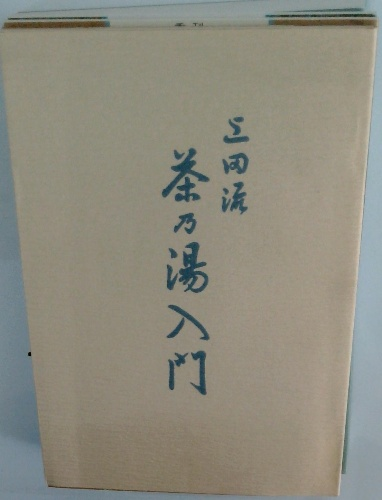 上田流
茶乃湯入門
季刊